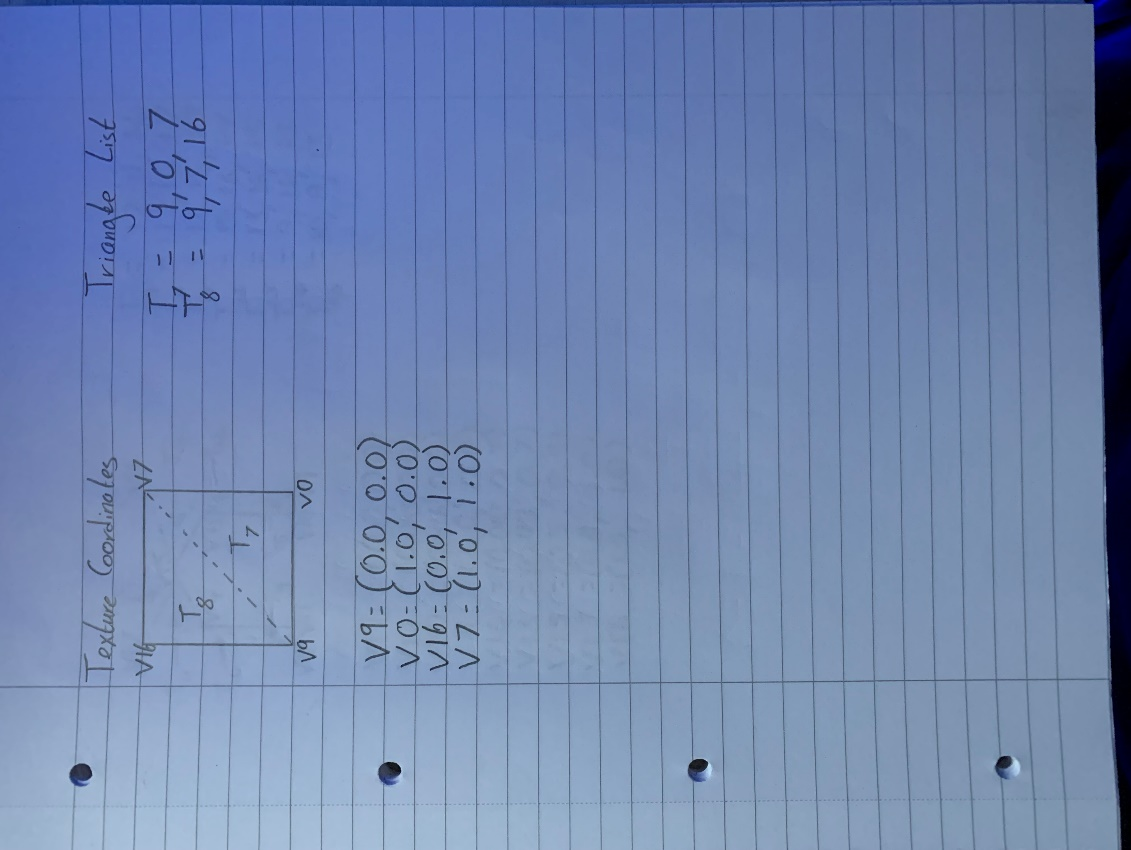 Texture Coordinates
V16 V7
T8
T7
V9 V0
V9 = (0.0, 0.0)
V0 = (1.0, 0.0)
V16 = (0.0, 1.0)
V7 = (1.0, 1.0)
Triangle List
T7 = 9, 0, 7
T8 = 9, 7, 16